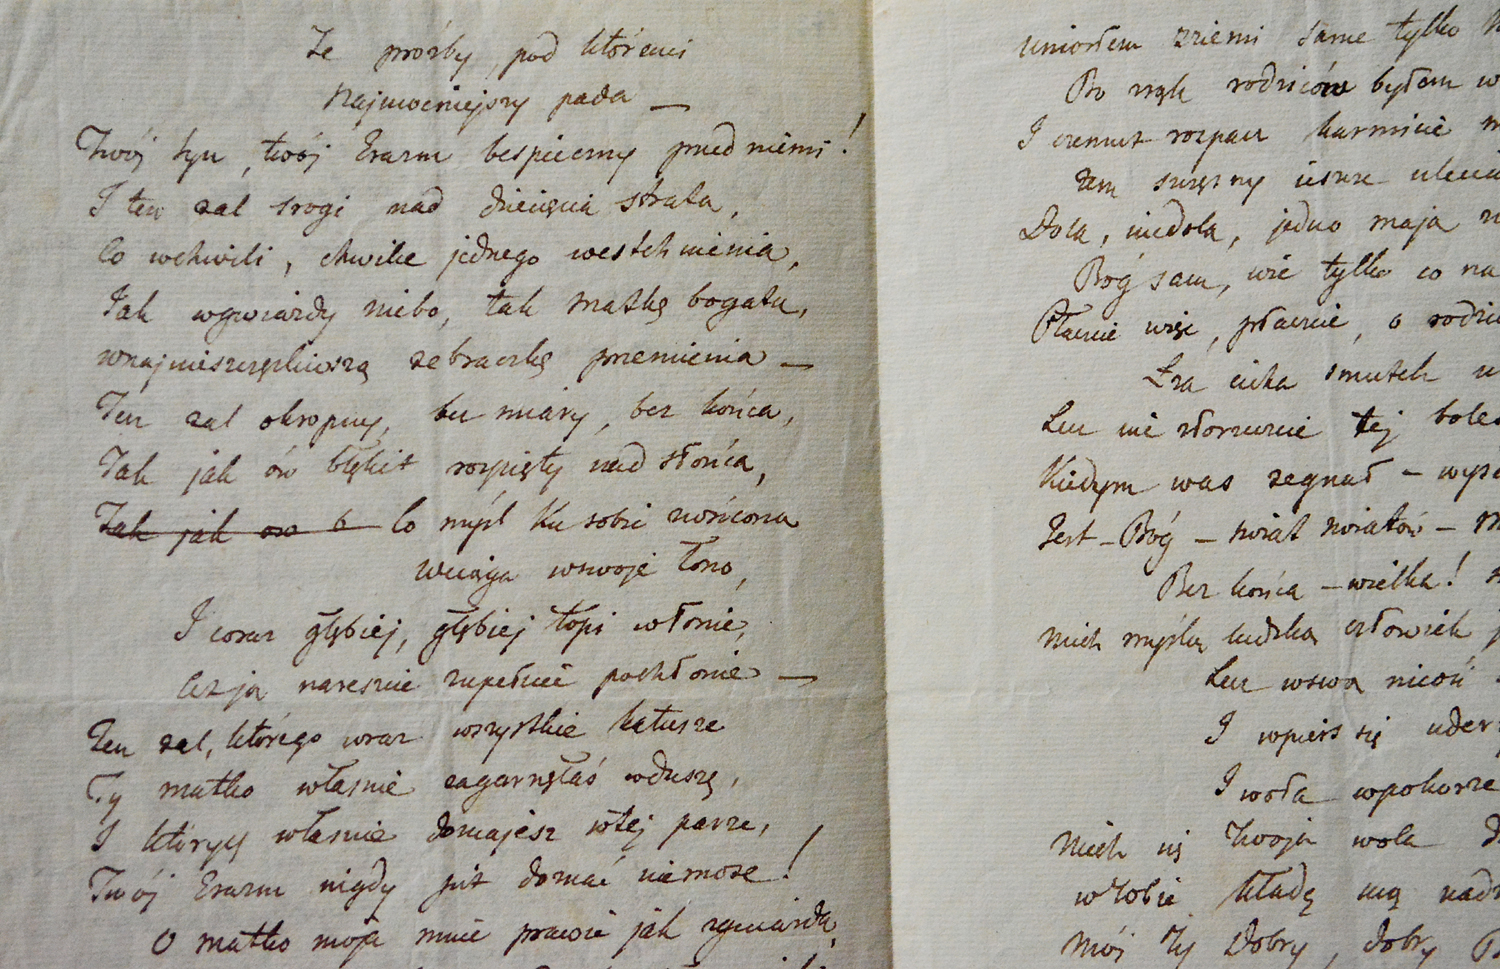 Te prośby, pod któremi
Najmocniejszy pada —
Twój syn, twój Erazm bespieczny przed niemi!
I ten żal srogi nad dziecięcia strata,
Co wchwili, chwilce jednego westchnienia,
Jak wgwiazdy niebo, tak matkę bogatą,
wnajnieszczęśliwszą żebraczkę przemienia —
Ten żal okropny, bez miary, bez końca,
Tak jak ów błękit rozpięty nad słońca,
Tak jak ow b Co myśl ku sobie zwrócona
Wciąga wswoje łono,
I coraz głębiej, głębiej topi włonie,
Aż ja nareszcie zupełnie pochłonie —
Ten żal, którego wraz wszystkie katusze
Ty matko właśnie zagarnęłaś wduszę,
I których właśnie doznajesz wtej parze,
Twój Erazm nigdy już doznać niemoże!
O matko moja mnie prawie jak zgwiazdą,
uniosłem z ziemi same tylko
Bo rąk rodziców byłem w
I czemuż rozpacz karmicie
Żem szczęsny
Dola, niedola, jedno mają
Bóg sam, wie tylko co na
Płaczcie więc, płaczcie, o
Łza cicha smutek
Lecz nie złorzeczcie tej
Kiedym was żegnał —
Jest — Bóg — świat światów —
Bez końca — wielka!
Niech myślą ludzką człowiek
Lecz wswą nicość
I wpierś się
I woła wpokorze
Niech się twoja wola
wTobie kładę mą
Mój Ty Dobry, dobry